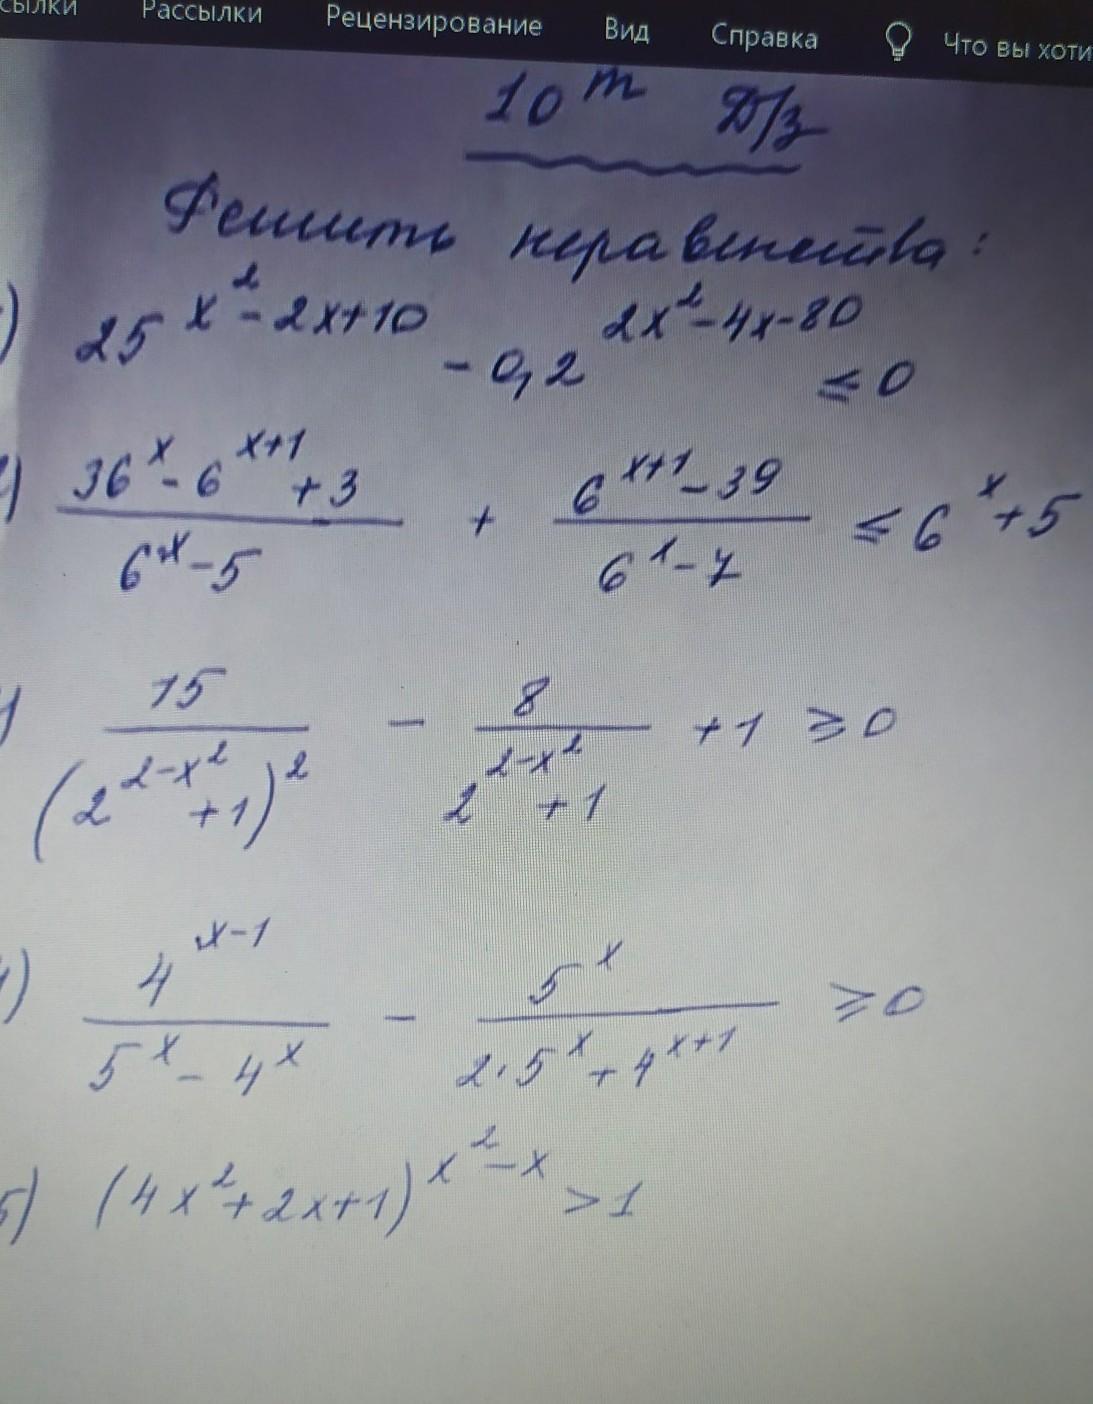 сылки Рассылки Рецензирование Вид Справка Что вы хоти
10 т Д/з
Решить неравенства:
) 25^{x^2-2x+10} - 0,2^{2x^2-4x-80} ≤ 0
2) \frac{36^x - 6^{x+1} + 3}{6^x - 5} + \frac{6^{x+1} - 39}{6^x - 7} ≤ 6^x + 5
) \frac{15}{(2^{2-x^2} + 1)^2} - \frac{8}{2^{2-x^2} + 1} + 1 ≥ 0
4) \frac{4^{x-1}}{5^x - 4^x} - \frac{5^x}{2·5^x + 4^{x+1}} ≥ 0
5) (4x^2 + 2x + 1)^{x^2-x} > 1